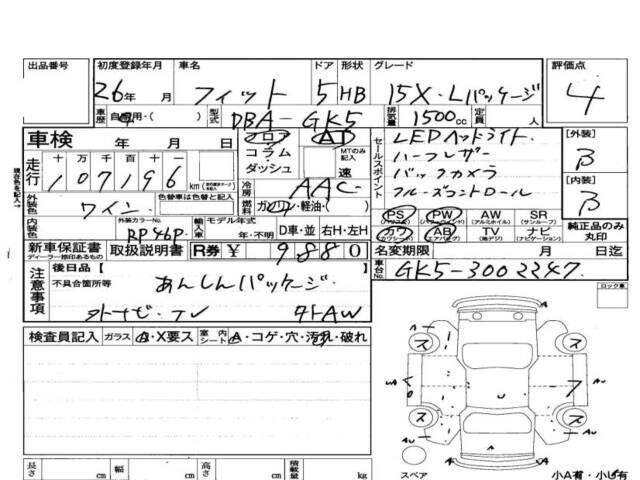 出品番号 初度登録年月 車名 ドア 形状 グレード 評価点
26年 月 フィット 5 HB 15X・Lパッケージ 4
車歴 自家用・( ) 型式 DBA-GK5 排気量 1500cc 定員 人
車検 年 月 日 フロア AT セールスポイント LEDヘッドライト [外装]
コラム MTのみ記入 ハーフレザー B
走行 十 万 千 百 十 一 ダッシュ 速 バックカメラ [内装]
107196 km 冷房 AAC クルーズコントロール B
現在色を記入→
外装色 ワイン 色替車は色替と記入 燃料 ガソリン・軽油・( ) PS PW AW SR 純正品のみ丸印
(パワステ) (パワーウィンド) (アルミホイル) (サンルーフ)
内装色 外装カラーNo. RP46P 輸入車 モデル年式 年・不明 D車・並 右H・左H カワ AB TV ナビ
(カワシート) (エアバッグ) (地デジ) (ナビゲーション)
新車保証書 取扱説明書 R券 ¥ 9880 名変期限 月 日迄
ディーラー捺印あるもの
注意事項 後日品 [ ] 車台No. GK5-3002247
不具合箇所等 あんしんパッケージ ロック車
外ナビ・TV 外AW
検査員記入 ガラス A・X要ス 室内シート A・コゲ・穴・汚れ・破れ
ス ス
A
ス ス
AU
A
長さ cm 幅 cm 高さ cm 積載量 kg スペア 小A有・小U有